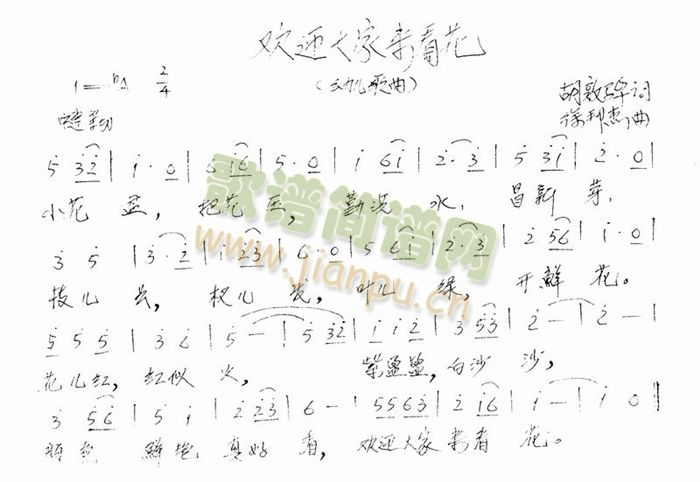 欢迎大家来看花
1=♭A 2/4
(幼儿歌曲)
胡敦骅词
徐邦杰曲
5 3 2 | 1 · 0 | 6 1 6 | 5 · 0 | 1 6 1 | 2 · 3 | 5 3 1 | 2 · 0 |
小花盆, 把花匡, 勤浇水, 冒新芽,
3 5 | 3 · 2 | 1 2 3 | 6 0 | 5 6 1 | 2 · 3 | 2 5 6 | 1 · 0 |
枝儿长, 杈儿长, 叶儿绿, 开鲜花。
5 5 5 | 3 6 | 5 — | 5 3 2 | 1 1 2 | 3 5 3 | 2 — | 2 — |
花儿红, 红似火, 紫盈盈, 白沙沙,
3 5 6 | 5 1 | 2 2 3 | 6 — | 5 5 6 3 | 2 1 6 | 1 — | 1 0 |
颜色鲜艳真好看, 欢迎大家来看花。
歌谱简谱网
www.jianpu.cn